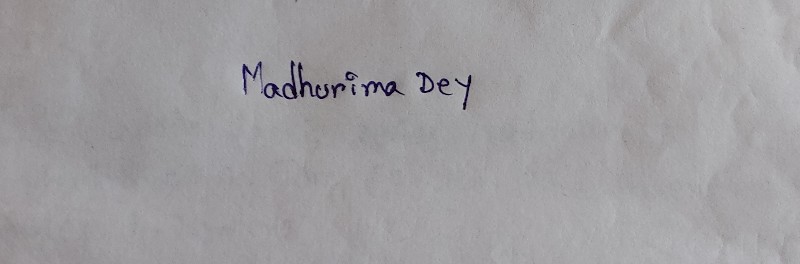 Madhurima Dey